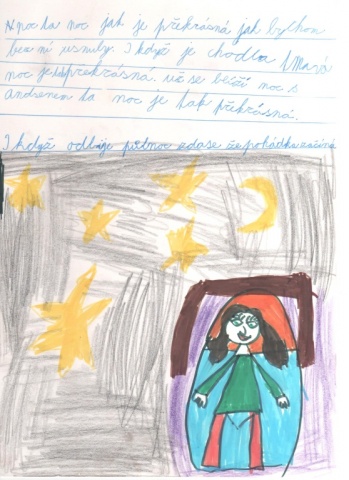 noc ta noc jak je překrásná jak bychom
bez ní usnuly. I když je chodla tmavá
noc je překrásná. už se blíží noc s
andrsenem ta noc je tak překrásná.
I když odbije půlnoc zdase že pohádka začíná